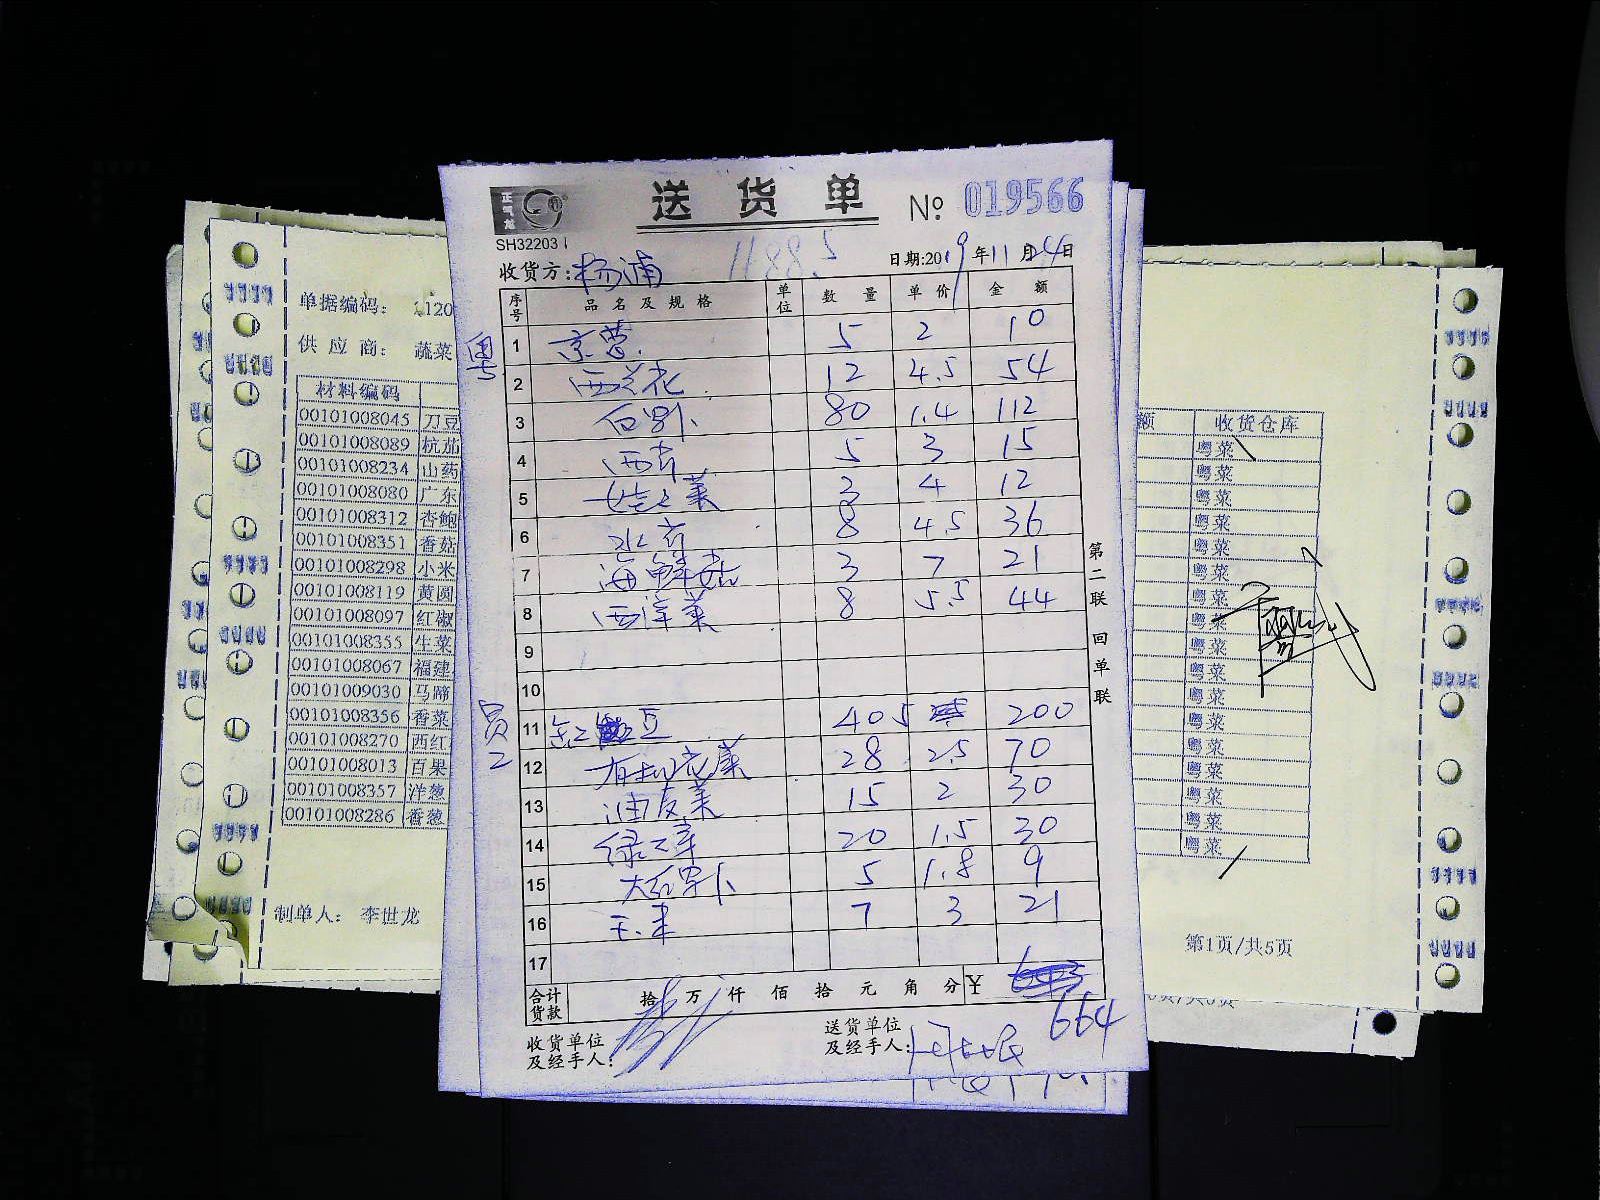 正气龙
送货单
№ 019566
SH322031
1188.5
收货方:杨浦
日期:2019年11月24日
序号 品名及规格 单位 数量 单价 金额
粤
1 京葱 5 2 10
2 西兰花 12 4.5 54
3 白萝卜 80 1.4 112
4 西芹 5 3 15
5 娃娃菜 3 4 12
6 水芹 8 4.5 36
7 海鲜菇 3 7 21
8 西洋菜 8 5.5 44
9
10
员工
11 豆 40 5 200
12 有机花菜 28 2.5 70
13 油麦菜 15 2 30
14 绿豆芽 20 1.5 30
15 大红萝卜 5 1.8 9
16 玉米 7 3 21
17
合计货款 拾 万 仟 佰 拾 元 角 分 ¥
664
收货单位及经手人:
送货单位及经手人:
第二联 回单联
单据编码: 1120
供应商: 蔬菜
材料编码
00101008045 刀豆
00101008089 杭茄
00101008234 山药
00101008080 广东
00101008312 杏鲍
00101008351 香菇
00101008298 小米
00101008119 黄圆
00101008097 红椒
00101008355 生菜
00101008067 福建
00101009030 马蹄
00101008356 香菜
00101008270 西红
00101008013 百果
00101008357 洋葱
00101008286 香葱
制单人: 李世龙
额 收货仓库
粤菜
粤菜
粤菜
粤菜
粤菜
粤菜
粤菜
粤菜
粤菜
粤菜
粤菜
粤菜
粤菜
粤菜
粤菜
粤菜
粤菜
第1页/共5页